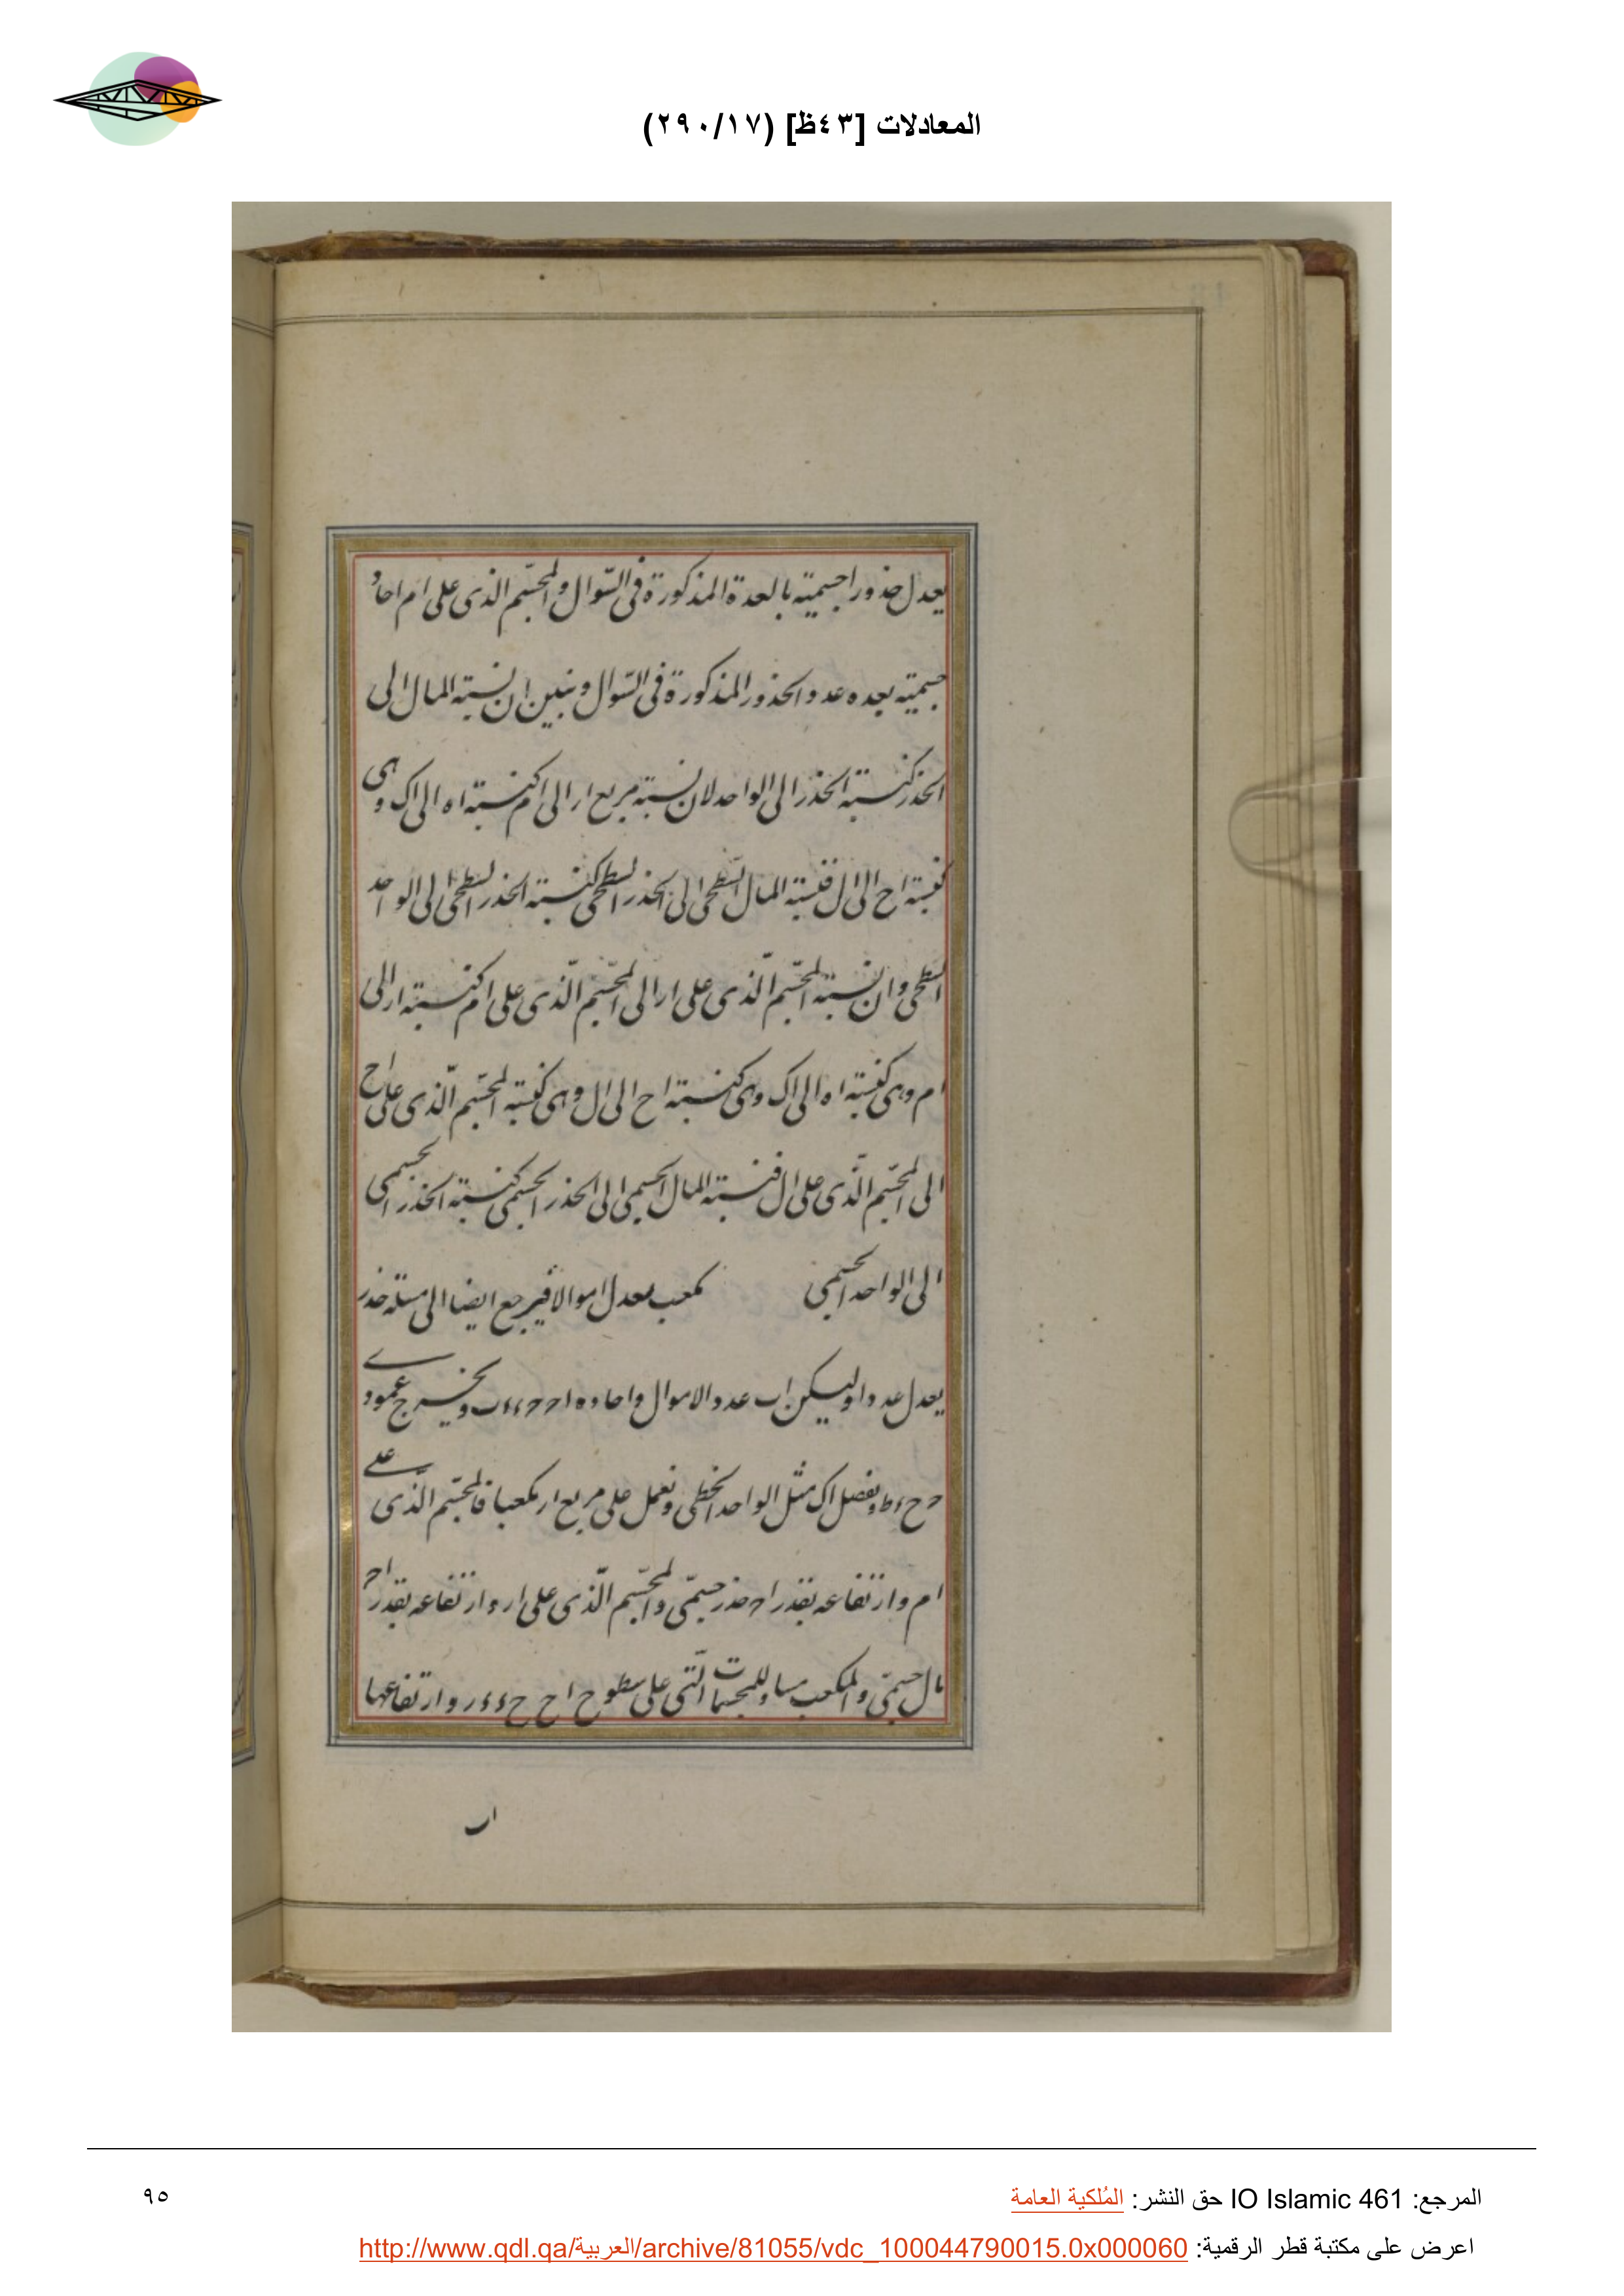 المعادلات [٤٣ظ] (٢٩٠/١٧)
يعدل جذورا جسمية بالعدة المذكورة فى السّوال والمجسّم الذى على ام احاد
جسمية بعده عدد الجذور المذكورة فى السّوال ونبين ان نسبة المال الى
الجذر كنسبة الجذر الى الواحد لان نسبة مربع ار الى ام كنسبة اه الى اك وهى
كنسبة اح الى ال فنسبة المال السّطحى الى الجذر السطحى كنسبة الجذر السطحى الى الواحد
السطحى وان نسبة المجسّم الّذى على ار الى المجسّم الّذى على ام كنسبة ار الى
ام وهى كنسبة اه الى اك وهى كنسبة اح الى ال وهى كنسبة المجسّم الّذى على اح
الى المجسّم الّذى على ال فنسبة المال الجسمى الى الجذر الجسمى كنسبة الجذر الجسمى
الى الواحد الجسمى مكعب يعدل اموالا فيرجع ايضا الى مسئلة جذر
يعدل عددا وليكن اب عدد الاموال واحاده ا ح ح د د ب ويخرج عمودى
ح ح د ط ونفصل اك مثل الواحد الخطى ونعمل على مربع ار مكعبا فالمجسّم الّذى على
ام وارتفاعه بقدر اح جذر جسمّى والمجسّم الّذى على ار وارتفاعه بقدر اح
مال جسمّى والمكعب مساو للمجسمات الّتى على سطوح اح ح د د ر وارتفاعها
اب
المرجع: IO Islamic 461 حق النشر: المُلكية العامة
٩٥
اعرض على مكتبة قطر الرقمية: http://www.qdl.qa/العربية/archive/81055/vdc_100044790015.0x000060